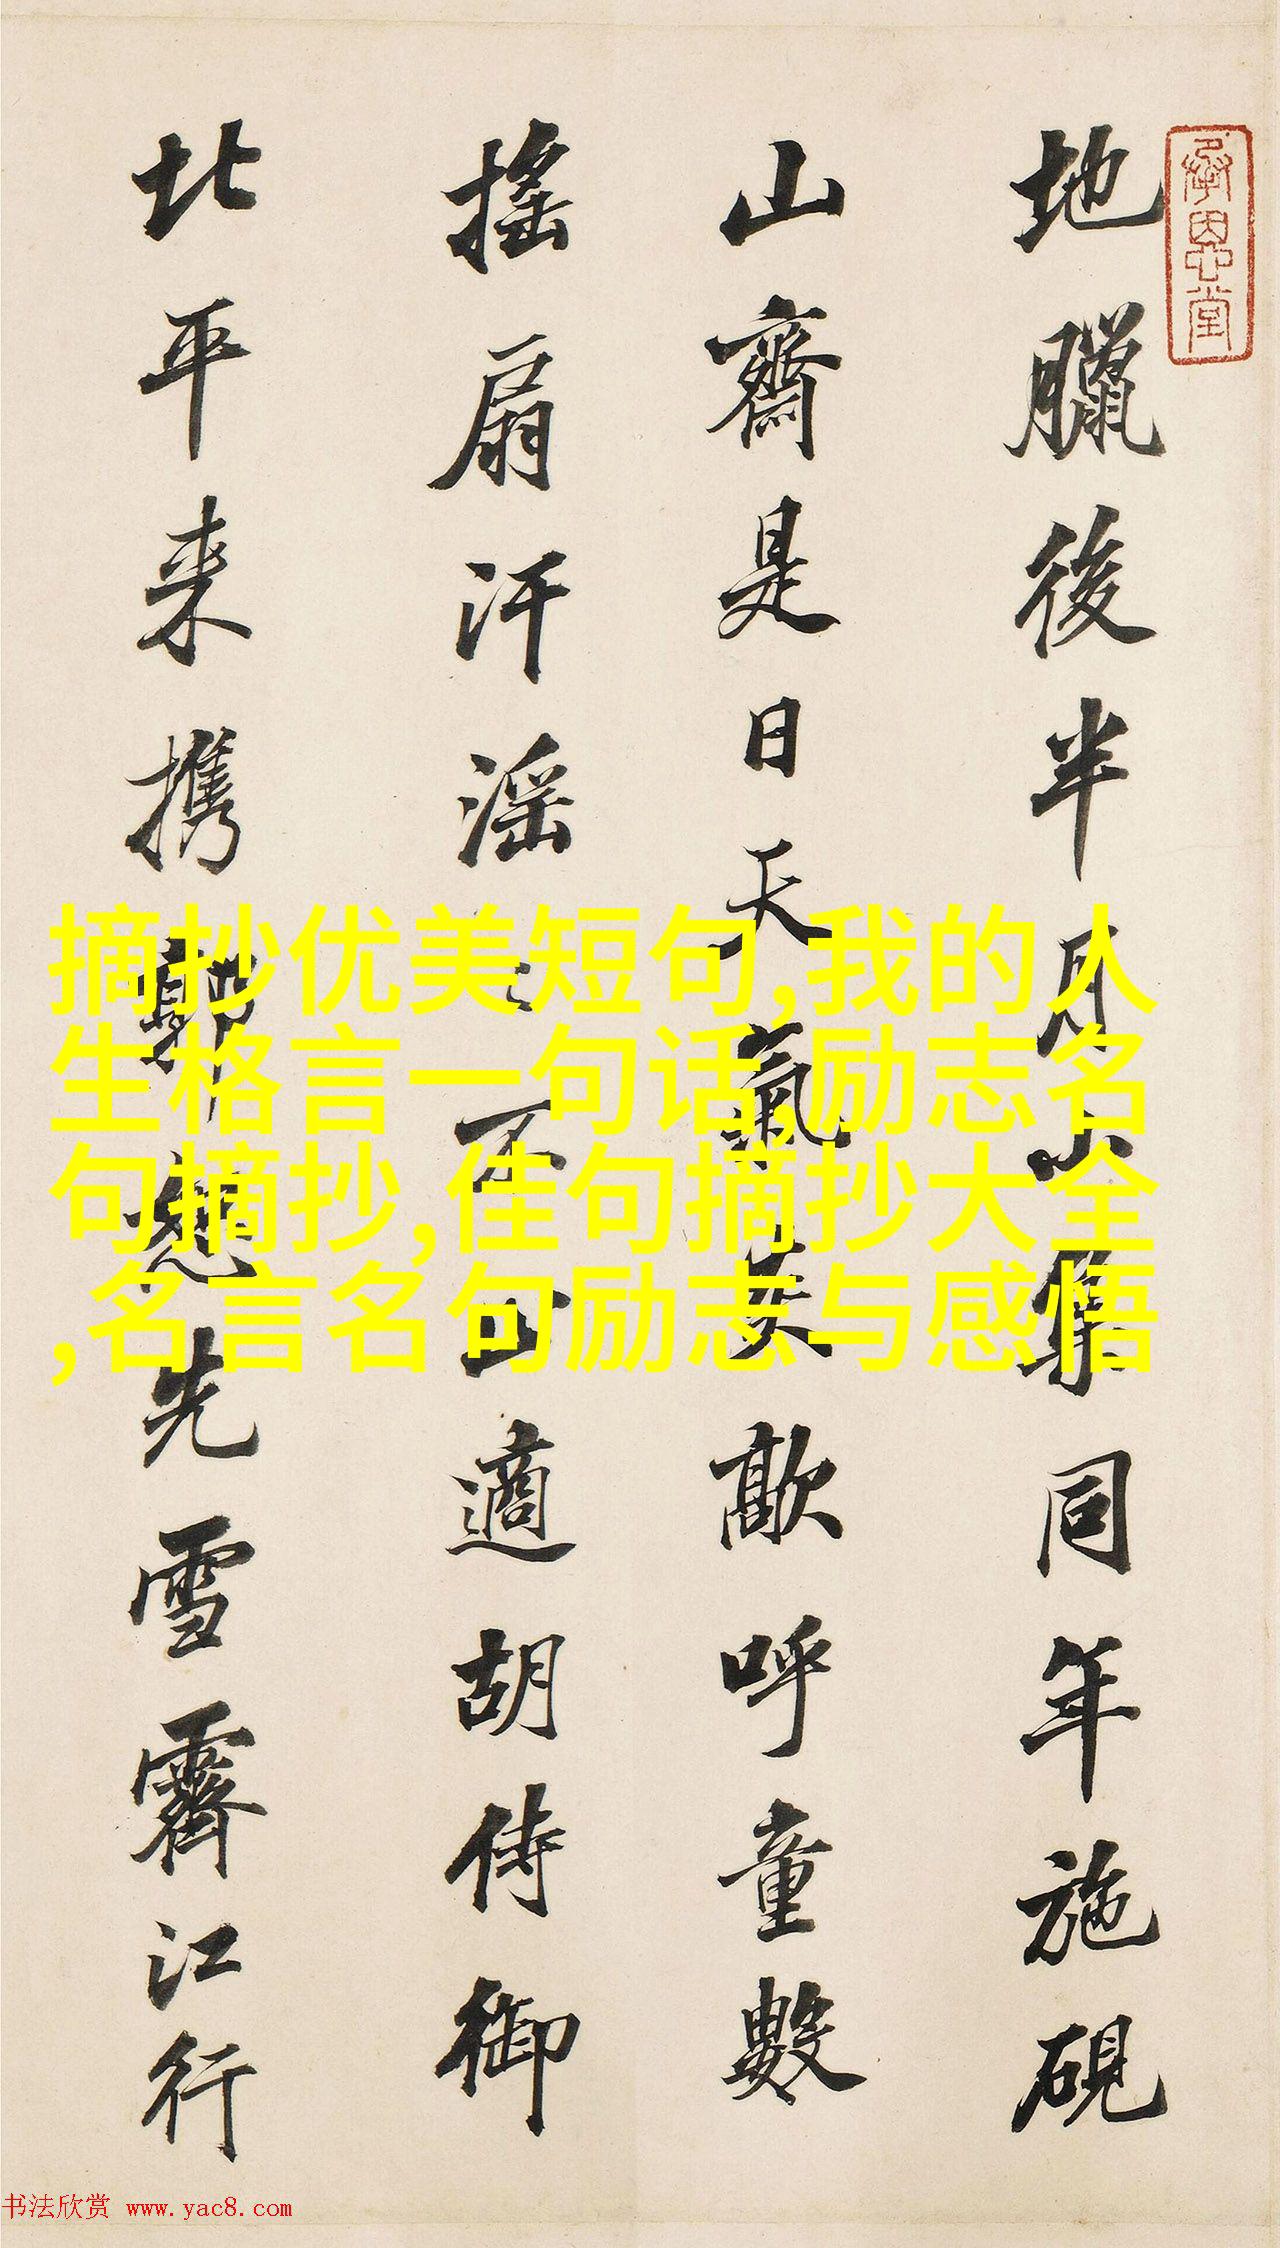 地臘後半月小集同年施硯
山齋是日天氣炎歊呼童數
搖扇汗滛〻不止適胡侍御
北平来携郭恕先雪霽江行
承恩堂
摘抄优美短句,我的人
生格言一句话,励志名
句摘抄,佳句摘抄大全
,名言名句励志与感悟
书法欣赏 www.yac8.com